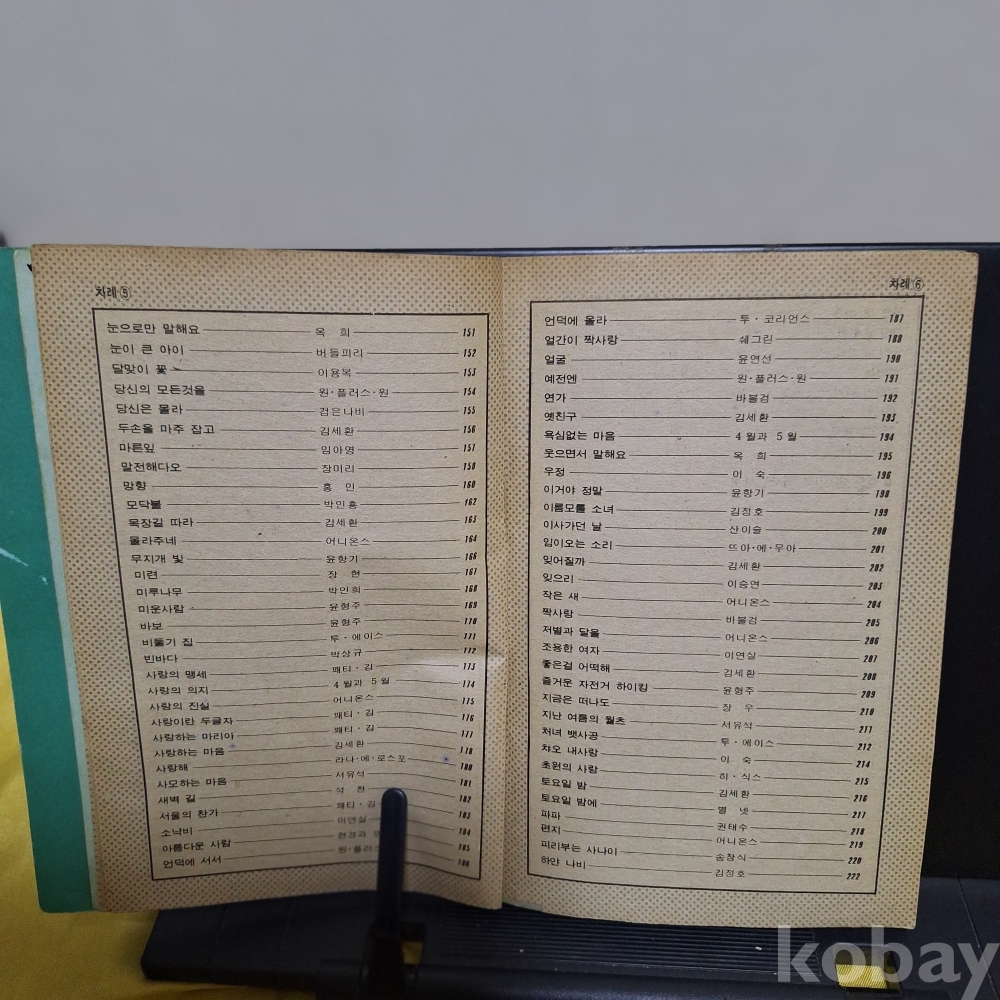 차례 ⑤
눈으로만 말해요 옥 희 151
눈이 큰 아이 버들피리 152
달맞이 꽃 이용복 153
당신의 모든것을 원·플러스·원 154
당신은 몰라 검은나비 155
두손을 마주 잡고 김세환 156
마른잎 임아영 157
말전해다오 장미리 158
망향 홍 민 160
모닥불 박인흥 162
목장길 따라 김세환 163
몰라주네 어니온스 164
무지개 빛 윤항기 166
미련 장 현 167
미루나무 박인희 168
미운사람 윤형주 169
바보 윤형주 170
비둘기 집 투·에이스 171
빈바다 박상규 172
사랑의 맹세 패티·김 173
사랑의 의지 4월과 5월 174
사랑의 진실 어니온스 175
사랑이란 두글자 패티·김 176
사랑하는 마리아 패티·김 177
사랑하는 마음 김세환 178
사랑해 라나·에·로스포 180
사모하는 마음 서유석 181
새벽 길 석 찬 182
서울의 찬가 패티·김 183
소낙비 이연실 184
아름다운 사람 현경과 185
언덕에 서서 원·플러스 186
차례 ⑥
언덕에 올라 투·코리언스 187
얼간이 짝사랑 쉐그린 188
얼굴 윤연선 190
예전엔 원·플러스·원 191
연가 바블검 192
옛친구 김세환 193
욕심없는 마음 4월과 5월 194
웃으면서 말해요 옥 희 195
우정 이 숙 196
이거야 정말 윤항기 198
이름모를 소녀 김정호 199
이사가던 날 산이슬 200
임이오는 소리 뜨아·에·무아 201
잊어질까 김세환 202
잊으리 이승연 203
작은 새 어니온스 204
짝사랑 바블검 205
저별과 달을 어니온스 206
조용한 여자 이연실 207
좋은걸 어떡해 김세환 208
즐거운 자전거 하이킹 윤형주 209
지금은 떠나도 장 우 210
지난 여름의 왈츠 서유석 211
처녀 뱃사공 투·에이스 212
챠오 내사랑 이 숙 214
초원의 사랑 히·식스 215
토요일 밤 김세환 216
토요일 밤에 별 넷 217
파파 권태수 218
편지 어니온스 219
피리부는 사나이 송창식 220
하얀 나비 김정호 222
kobay